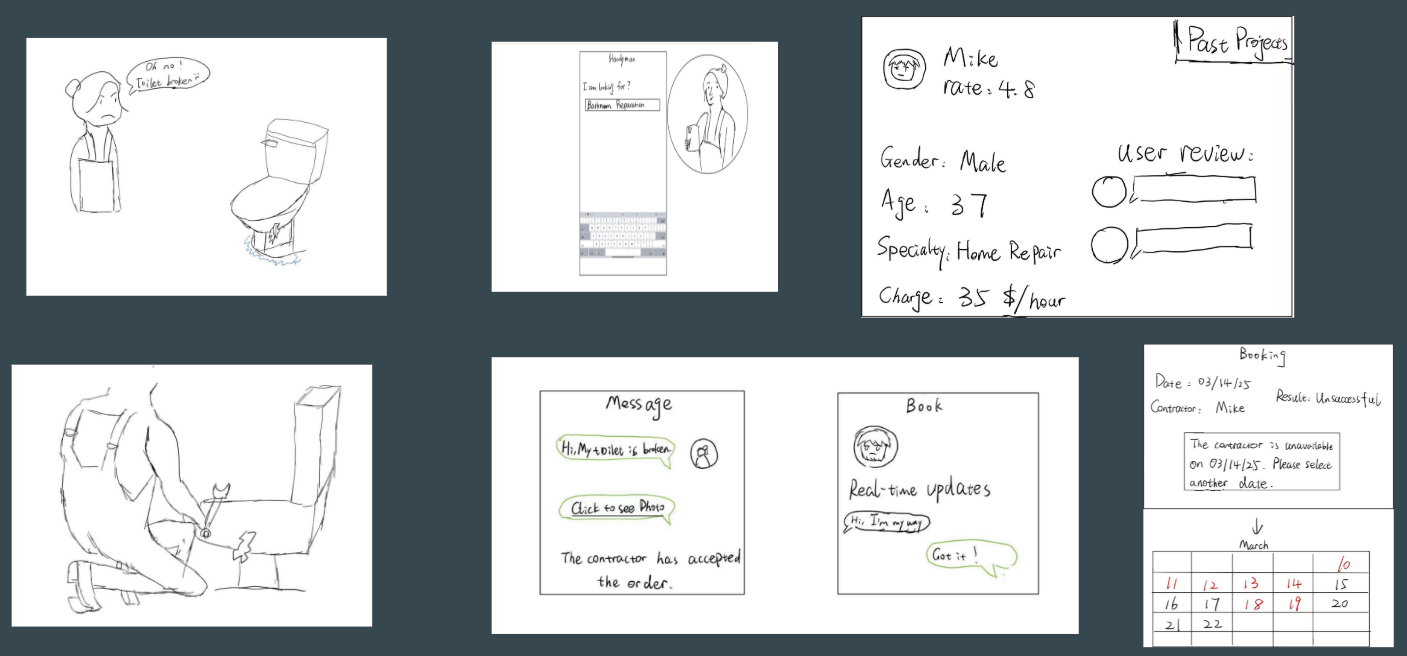 Oh no!
Toilet broken
Handyman
I am looking for?
Bathroom Reparation
Past Projects
Mike
rate: 4.8
Gender: Male
Age: 37
Specialty: Home Repair
Charge: 35 $/hour
User review:
Message
Hi, My toilet is broken.
Click to see Photo
The contractor has accepted
the order.
Book
Real-time updates
Hi, I'm my way
Got it!
Booking
Date: 03/14/25
Contractor: Mike
Result: Unsuccessful
The contractor is unavailable
on 03/14/25. Please select
another date.
March
10
11 12 13 14 15
16 17 18 19 20
21 22